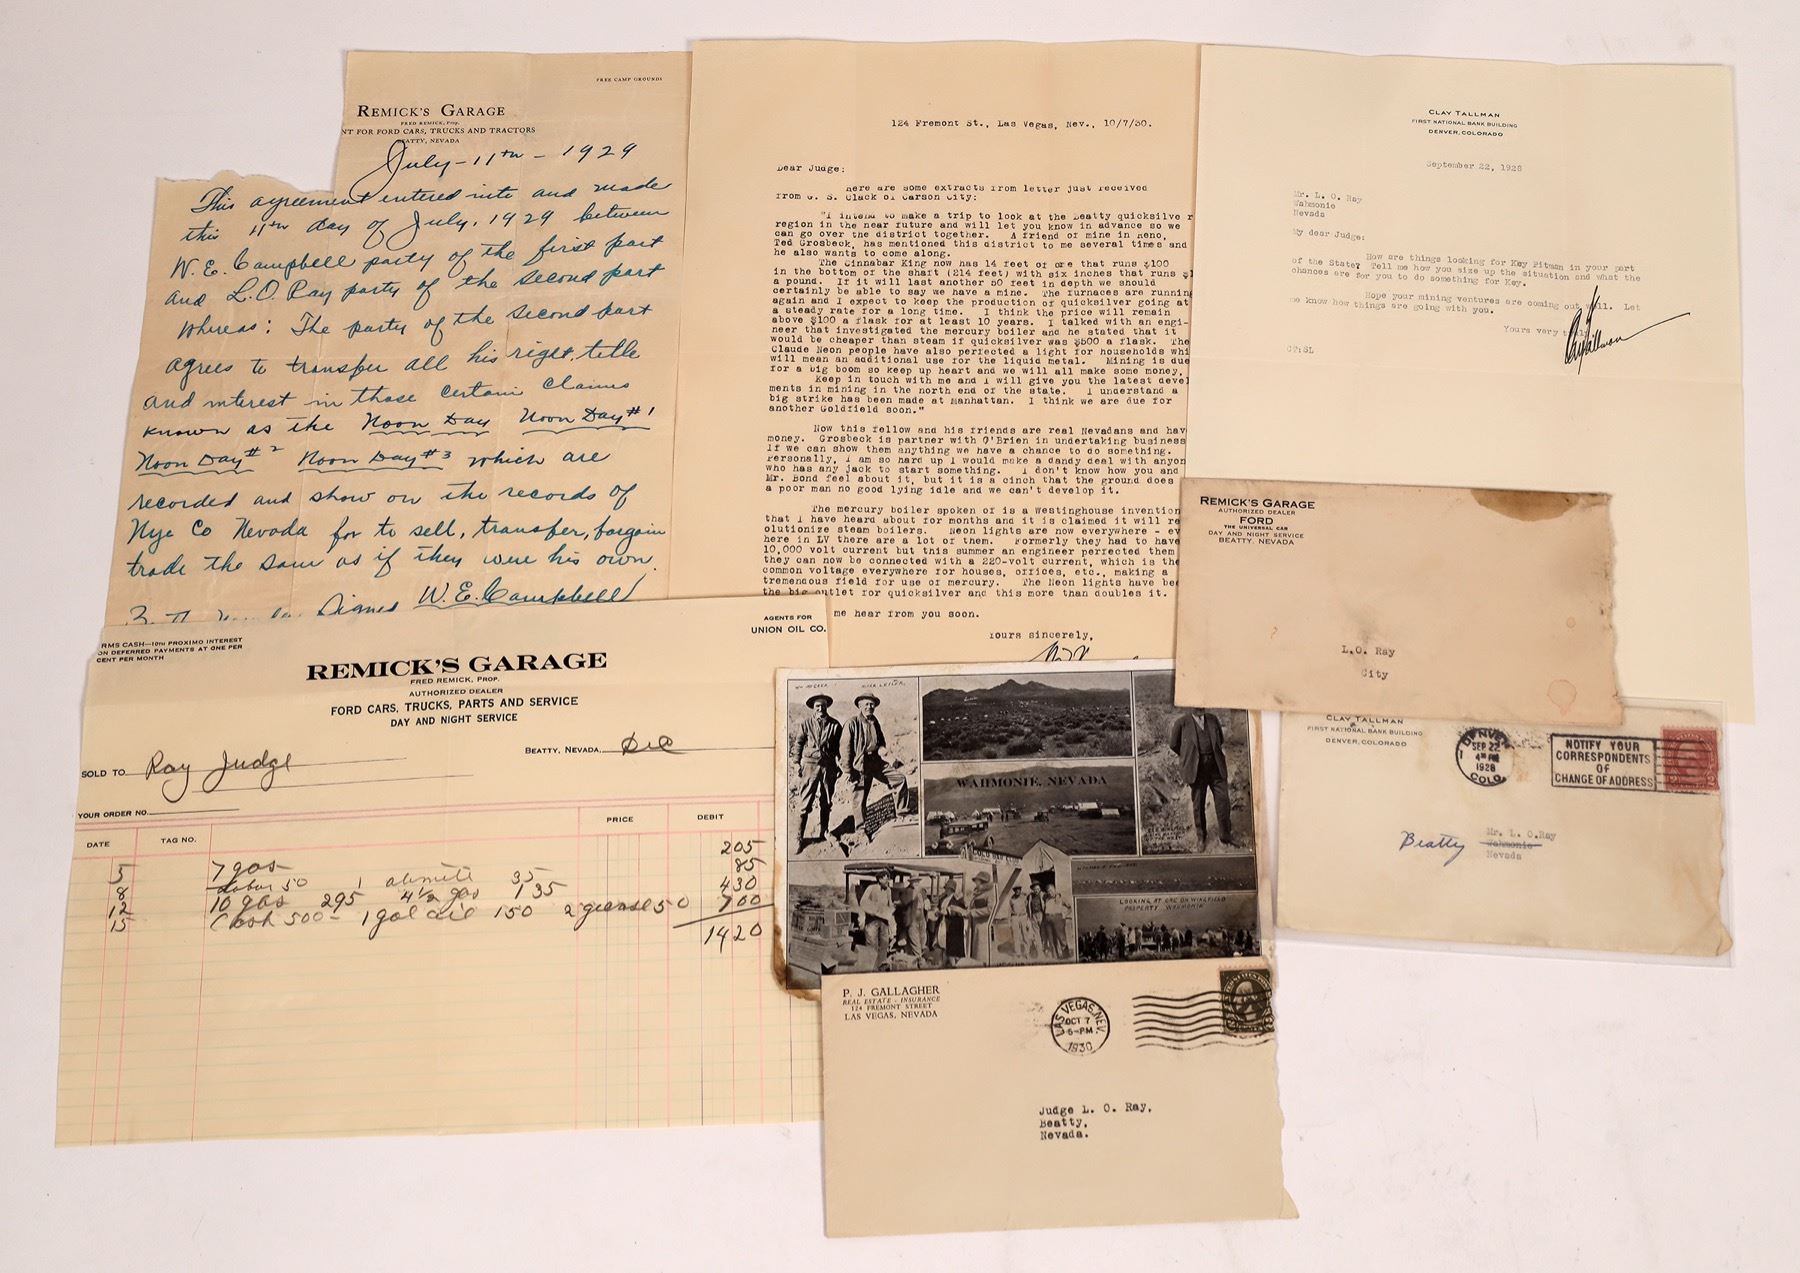 FREE CAMP GROUNDS
REMICK'S GARAGE
FRED REMICK, Prop.
NT FOR FORD CARS, TRUCKS AND TRACTORS
BEATTY, NEVADA
July-11th-1929
This agreement entered into and made
this 11th day of July, 1929 between
W.E. Campbell party of the first part
and L.O. Ray party of the second part
Whereas: The party of the second part
agrees to transfer all his right, title
and interest in those certain claims
known as the Noon Day Noon Day #1
Noon Day #2 Noon Day #3 which are
recorded and show on the records of
Nye Co Nevada for to sell, transfer, bargain
trade the same as if they were his own.
Signed W.E. Campbell
124 Fremont St., Las Vegas, Nev., 10/7/30.
Dear Judge:
Here are some extracts from letter just received
from G. S. Clack of Carson City:
"I intend to make a trip to look at the Beatty quicksilve r
region in the near future and will let you know in advance so we
can go over the district together. A friend of mine in Reno,
Ted Grosbeck, has mentioned this district to me several times and
he also wants to come along.
The Cinnabar King now has 14 feet of ore that runs $100
in the bottom of the shaft (214 feet) with six inches that runs $1
a pound. If it will last another 50 feet in depth we should
certainly be able to say we have a mine. The furnaces are running
again and I expect to keep the production of quicksilver going at
a steady rate for a long time. I think the price will remain
above $100 a flask for at least 10 years. I talked with an engi-
neer that investigated the mercury boiler and he stated that it
would be cheaper than steam if quicksilver was $500 a flask. The
Claude Neon people have also perfected a light for households whi
will mean an additional use for the liquid metal. Mining is due
for a big boom so keep up heart and we will all make some money.
Keep in touch with me and I will give you the latest devel
ments in mining in the north end of the state. I understand a
big strike has been made at Manhattan. I think we are due for
another Goldfield soon."
Now this fellow and his friends are real Nevadans and hav
money. Grosbeck is partner with O'Brien in undertaking business
If we can show them anything we have a chance to do something.
Personally, I am so hard up I would make a dandy deal with anyon
who has any jack to start something. I don't know how you and
Mr. Bond feel about it, but it is a cinch that the ground does
a poor man no good lying idle and we can't develop it.
The mercury boiler spoken of is a Westinghouse invention
that I have heard about for months and it is claimed it will re
olutionize steam boilers. Neon lights are now everywhere - ev
here in LV there are a lot of them. Formerly they had to have
10,000 volt current but this summer an engineer perfected them
they can now be connected with a 220-volt current, which is the
common voltage everywhere for houses, offices, etc., making a
tremendous field for use of mercury. The Neon lights have be
the big outlet for quicksilver and this more than doubles it.
me hear from you soon.
Yours sincerely,
CLAY TALLMAN
FIRST NATIONAL BANK BUILDING
DENVER, COLORADO
September 22, 1928
Mr. L. O. Ray
Wahmonie
Nevada
My dear Judge:
How are things looking for Key Pitman in your part
of the State? Tell me how you size up the situation and what the
chances are for you to do something for Key.
Hope your mining ventures are coming out well. Let
me know how things are going with you.
Yours very truly,
Clay Tallman
CT:SL
REMICK'S GARAGE
AUTHORIZED DEALER
FORD
THE UNIVERSAL CAR
DAY AND NIGHT SERVICE
BEATTY, NEVADA
L.O. Ray
City
CLAY TALLMAN
FIRST NATIONAL BANK BUILDING
DENVER, COLORADO
DENVER
SEP 22
4 PM
1928
COLO.
NOTIFY YOUR
CORRESPONDENTS
OF
CHANGE OF ADDRESS
Beatty
Mr. L. O. Ray
Wahmonie
Nevada
RMS CASH—10TH PROXIMO INTEREST
ON DEFERRED PAYMENTS AT ONE PER
CENT PER MONTH
AGENTS FOR
UNION OIL CO.
REMICK'S GARAGE
FRED REMICK, PROP.
AUTHORIZED DEALER
FORD CARS, TRUCKS, PARTS AND SERVICE
DAY AND NIGHT SERVICE
BEATTY, NEVADA, Dec
SOLD TO Ray Judge
YOUR ORDER NO.
DATE TAG NO. PRICE DEBIT
5 7 gas 205
8 Labor 50 1 35 85
12 10 gas 295 4½ gas 135 430
15 Cash 500- 1 gal oil 150 2 grease 50 700
1420
WAHMONIE, NEVADA
LOOKING AT ORE ON WINGFIELD
PROPERTY WAHMONIE
P. J. GALLAGHER
REAL ESTATE - INSURANCE
124 FREMONT STREET
LAS VEGAS, NEVADA
LAS VEGAS, NEV.
OCT 7
6-PM
1930
Judge L. O. Ray,
Beatty,
Nevada.